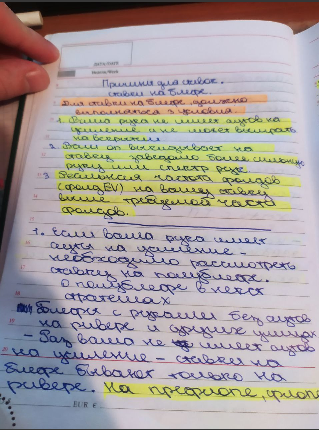 Причины для ставок.
Ставки на блефе.
Для ставки на блефе, должно
выполняться 3 условия
1. Ваша рука не имеет аутов на
усиление и не может выиграть
на вскрытии
2. Ваш оп выкидывает на
ставку заведомо более сильную
руку или спектр рук.
3. Реальная частота фолдов
(фолд EV) на вашу ставку
выше требуемой частоты
фолдов.
1. Если ваша рука имеет
ауты на усиление -
необходимо рассмотреть
ставку на полублефе.
О полублефе в
Блефы с руками без аутов
на ривере и других улицах
- Раз ваша не имеет аутов
на усиление - ставки на
блефе бывают только на
ривере. На префлопе, флопе
EUR €